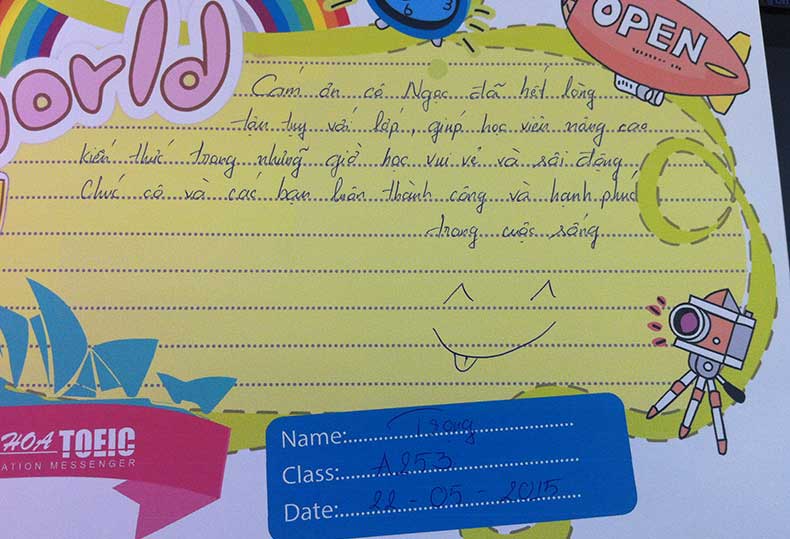 6 3
OPEN
orld
Cám ơn cô Ngọc đã hết lòng
tận tụy với lớp, giúp học viên nâng cao
kiến thức trong những giờ học vui vẻ và sôi động
Chúc cô và các bạn luôn thành công và hanh phúc
trong cuộc sống
HOA TOEIC
ATION MESSENGER
Name: Trọng
Class: A253
Date: 22 - 05 - 2015